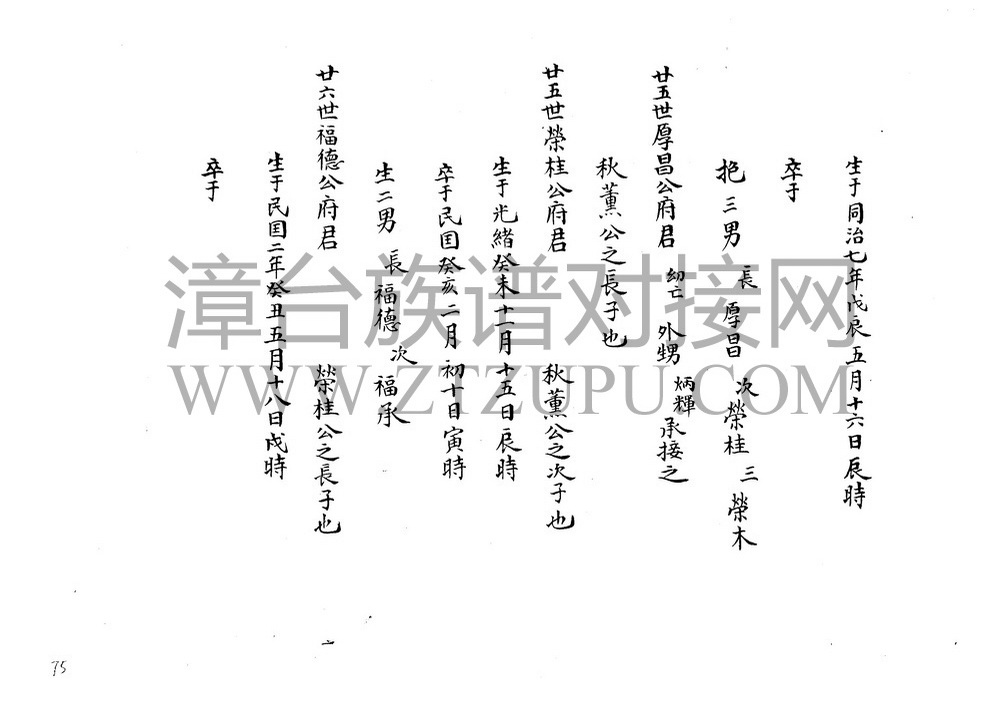 生于同治七年戊辰五月十六日辰時
卒于
抱三男 長 厚昌 次 榮桂 三 榮木
廿五世厚昌公府君 幼亡 外甥 炳輝 承接之
秋薰公之長子也
廿五世榮桂公府君 秋薰公之次子也
生于光緒癸未十一月十五日辰時
卒于民国癸亥二月初十日寅時
生二男 長 福德 次 福承
廿六世福德公府君 榮桂公之長子也
生于民国二年癸丑五月十八日戌時
卒于
漳台族谱对接网
WWW.ZTZUPU.COM
75